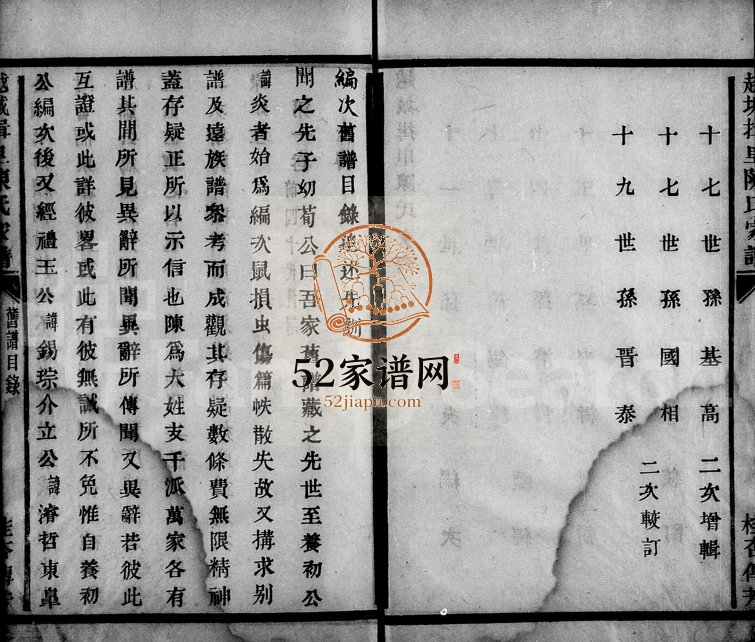 十七世孫基高 二次增輯
十七世孫國相
十九世孫晋泰 二次較訂
編次舊譜目錄追述先訓
聞之先子幼荀公曰吾家舊譜藏之先世至養初公
諱炎者始爲編次鼠損虫傷篇帙散失故又搆求別
譜及遠族譜叅考而成觀其存疑數條費無限精神
蓋存疑正所以示信也陳爲大姓支千派萬家各有
譜其間所見異辭所聞異辭所傳聞又異辭若彼此
互證或此詳彼畧或此有彼無誠所不免惟自養初
公編次後又經禮王公諱錫琮介立公諱濬哲東阜
陳氏家譜
舊譜目錄
52家谱网
52jiapu.com